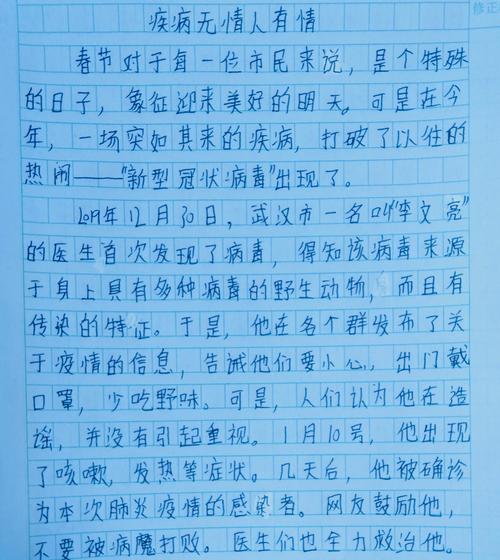 疾病无情人有情
春节对于每一位市民来说，是个特殊
的日子，象征迎来美好的明天。可是在今
年，一场突如其来的疾病，打破了以往的
热闹——“新型冠状病毒”出现了。
2019年12月30日，武汉市一名叫“李文亮”
的医生首次发现了病毒，得知该病毒来源
于身上具有多种病毒的野生动物，而且有
传染的特征。于是，他在各个群发布了关
于疫情的信息，告诫他们要小心，出门戴
口罩，少吃野味。可是，人们认为他在造
谣，并没有引起重视。1月10号，他出现
了咳嗽，发热等症状。几天后，他被确诊
为本次肺炎疫情的感染者。网友鼓励他，
不要被病魔打败。医生们也全力救治他。
修正